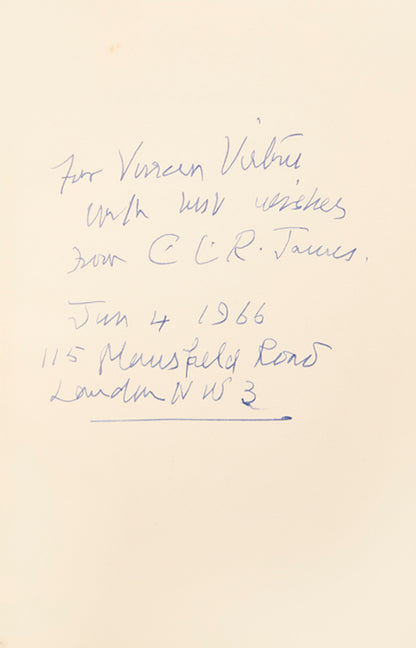 For Vivian Virtue
with best wishes
from C. L. R. James.
Jan 4 1966
115 Mansfield Road
London N W 3